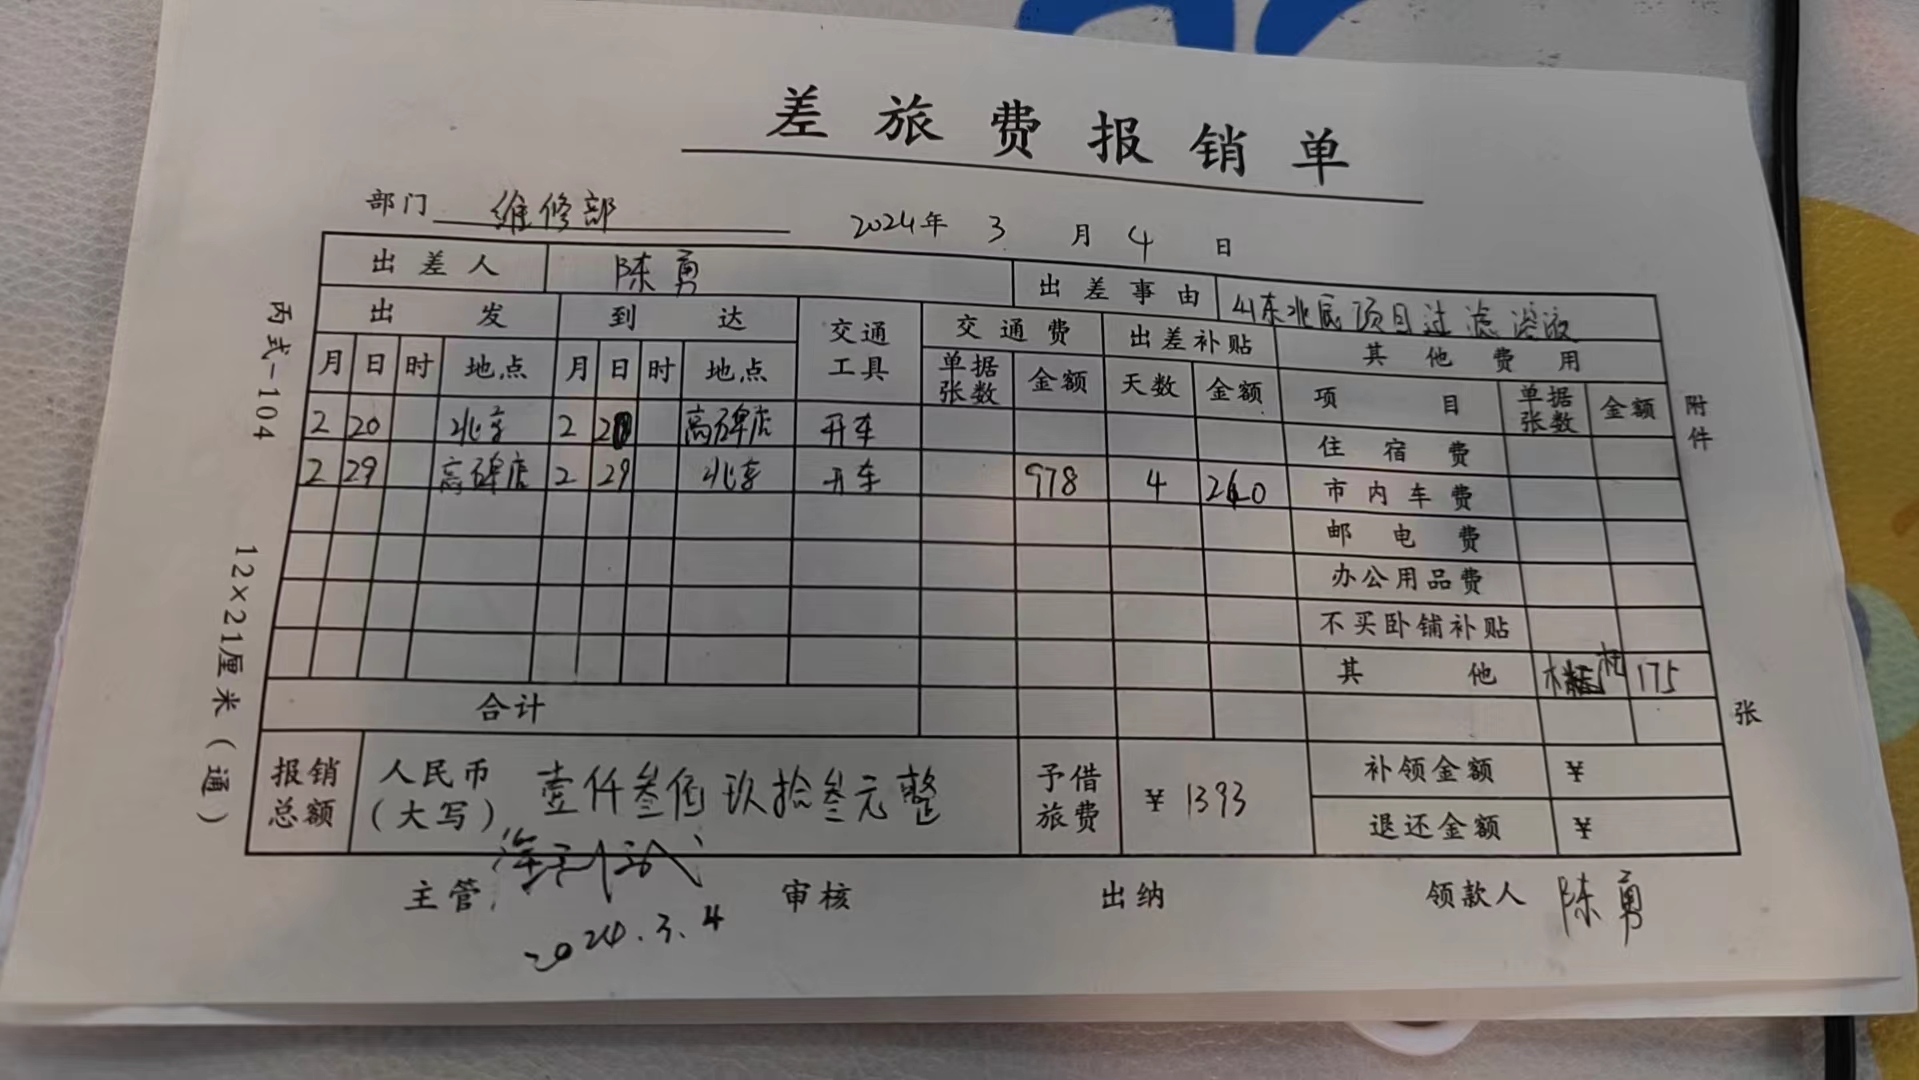 差旅费报销单
部门 维修部 2024年 3月 4日
出差人 陈勇 出差事由 山东兆辰项目过滤溶液
出发 到达 交通工具 交通费 出差补贴 其他费用
月 日 时 地点 月 日 时 地点 单据张数 金额 天数 金额 项目 单据张数 金额
2 20 北京 2 20 高碑店 开车 住宿费
2 29 高碑店 2 29 北京 开车 978 4 240 市内车费
邮电费
办公用品费
不买卧铺补贴
其他 175
合计
报销总额 人民币(大写) 壹仟叁佰玖拾叁元整 予借旅费 ¥ 1393 补领金额 ¥
退还金额 ¥
主管 审核 出纳 领款人 陈勇
2024.3.4
丙式-104 12×21厘米(通)
附件 张